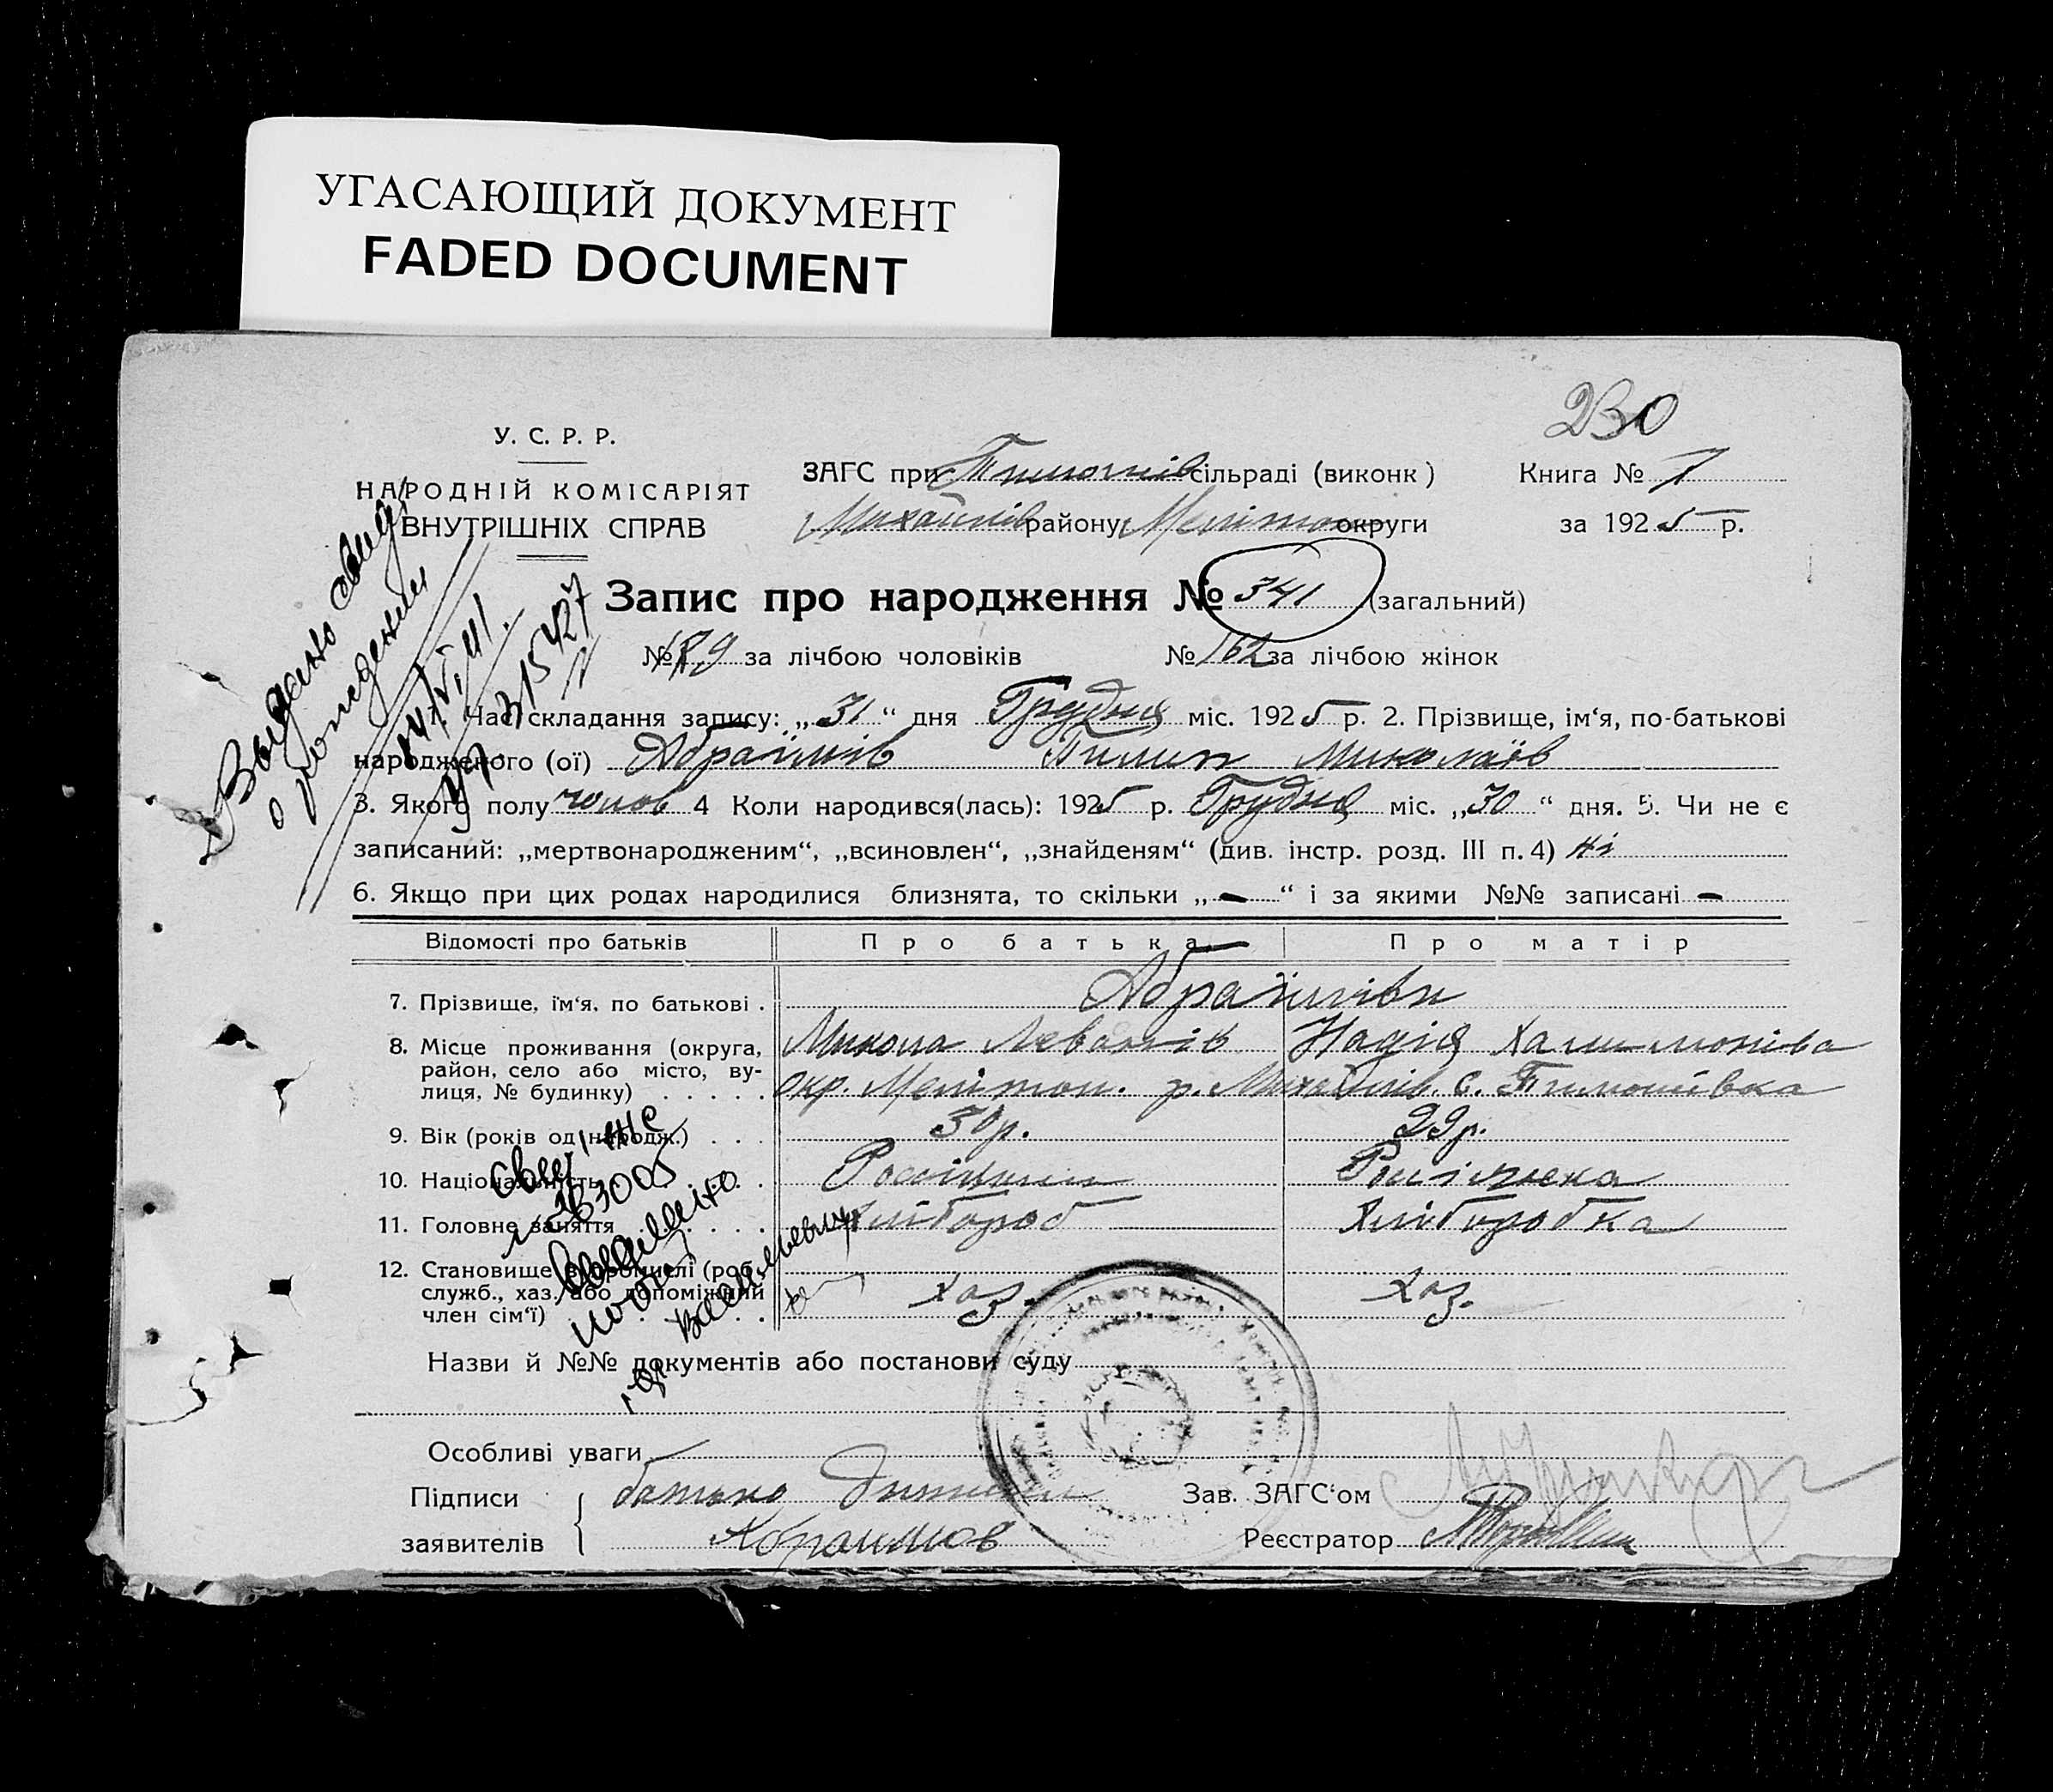 УГАСАЮЩИЙ ДОКУМЕНТ
FADED DOCUMENT
230
У. С. Р. Р.
НАРОДНІЙ КОМІСАРІЯТ
ВНУТРІШНІХ СПРАВ
ЗАГС при Тимошів сільраді (виконк)
Михайлів району Мелітоп округи
Книга № 7
за 1925 р.
Запис про народження № 341 (загальний)
№ 179 за лічбою чоловіків № 162 за лічбою жінок
1. Час складання запису: „31“ дня Грудня міс. 1925 р. 2. Прізвище, ім‘я, по-батькові
народженого (ої) Абраїмів Пилип Миколаїв
3. Якого полу чолов 4 Коли народився(лась): 1925 р. Грудня міс. „30“ дня. 5. Чи не є
записаний: „мертвонародженим“, „всиновлен“, „знайденям“ (див. інстр. розд. III п. 4) ні
6. Якщо при цих родах народилися близнята, то скільки „—“ і за якими №№ записані —
Відомості про батьків Про батька Про матір
7. Прізвище, ім‘я, по батькові . Абраїміви
Микола Надія
8. Місце проживання (округа,
район, село або місто, ву-
лиця, № будинку) . . . . . окр. Мелітоп. р. Михайлів. с. Тимошівка
9. Вік (років од народж.) . . . 30р. 29р.
10. Національність . . . . Росіянин Росіянка
11. Головне заняття . . . . . Хлібороб Хліборобка
12. Становище в промислі (роб.,
служб., хаз. або допоміжний
член сім‘ї) . . . . хаз. хаз.
Назви й №№ документів або постанови суду
Особливі уваги
Підписи
заявителів
батько
Абраимов
Зав. ЗАГС‘ом
Реєстратор
Выдано свид.
о рождении
14/VI 41.
315427
свид. ЖС
383005